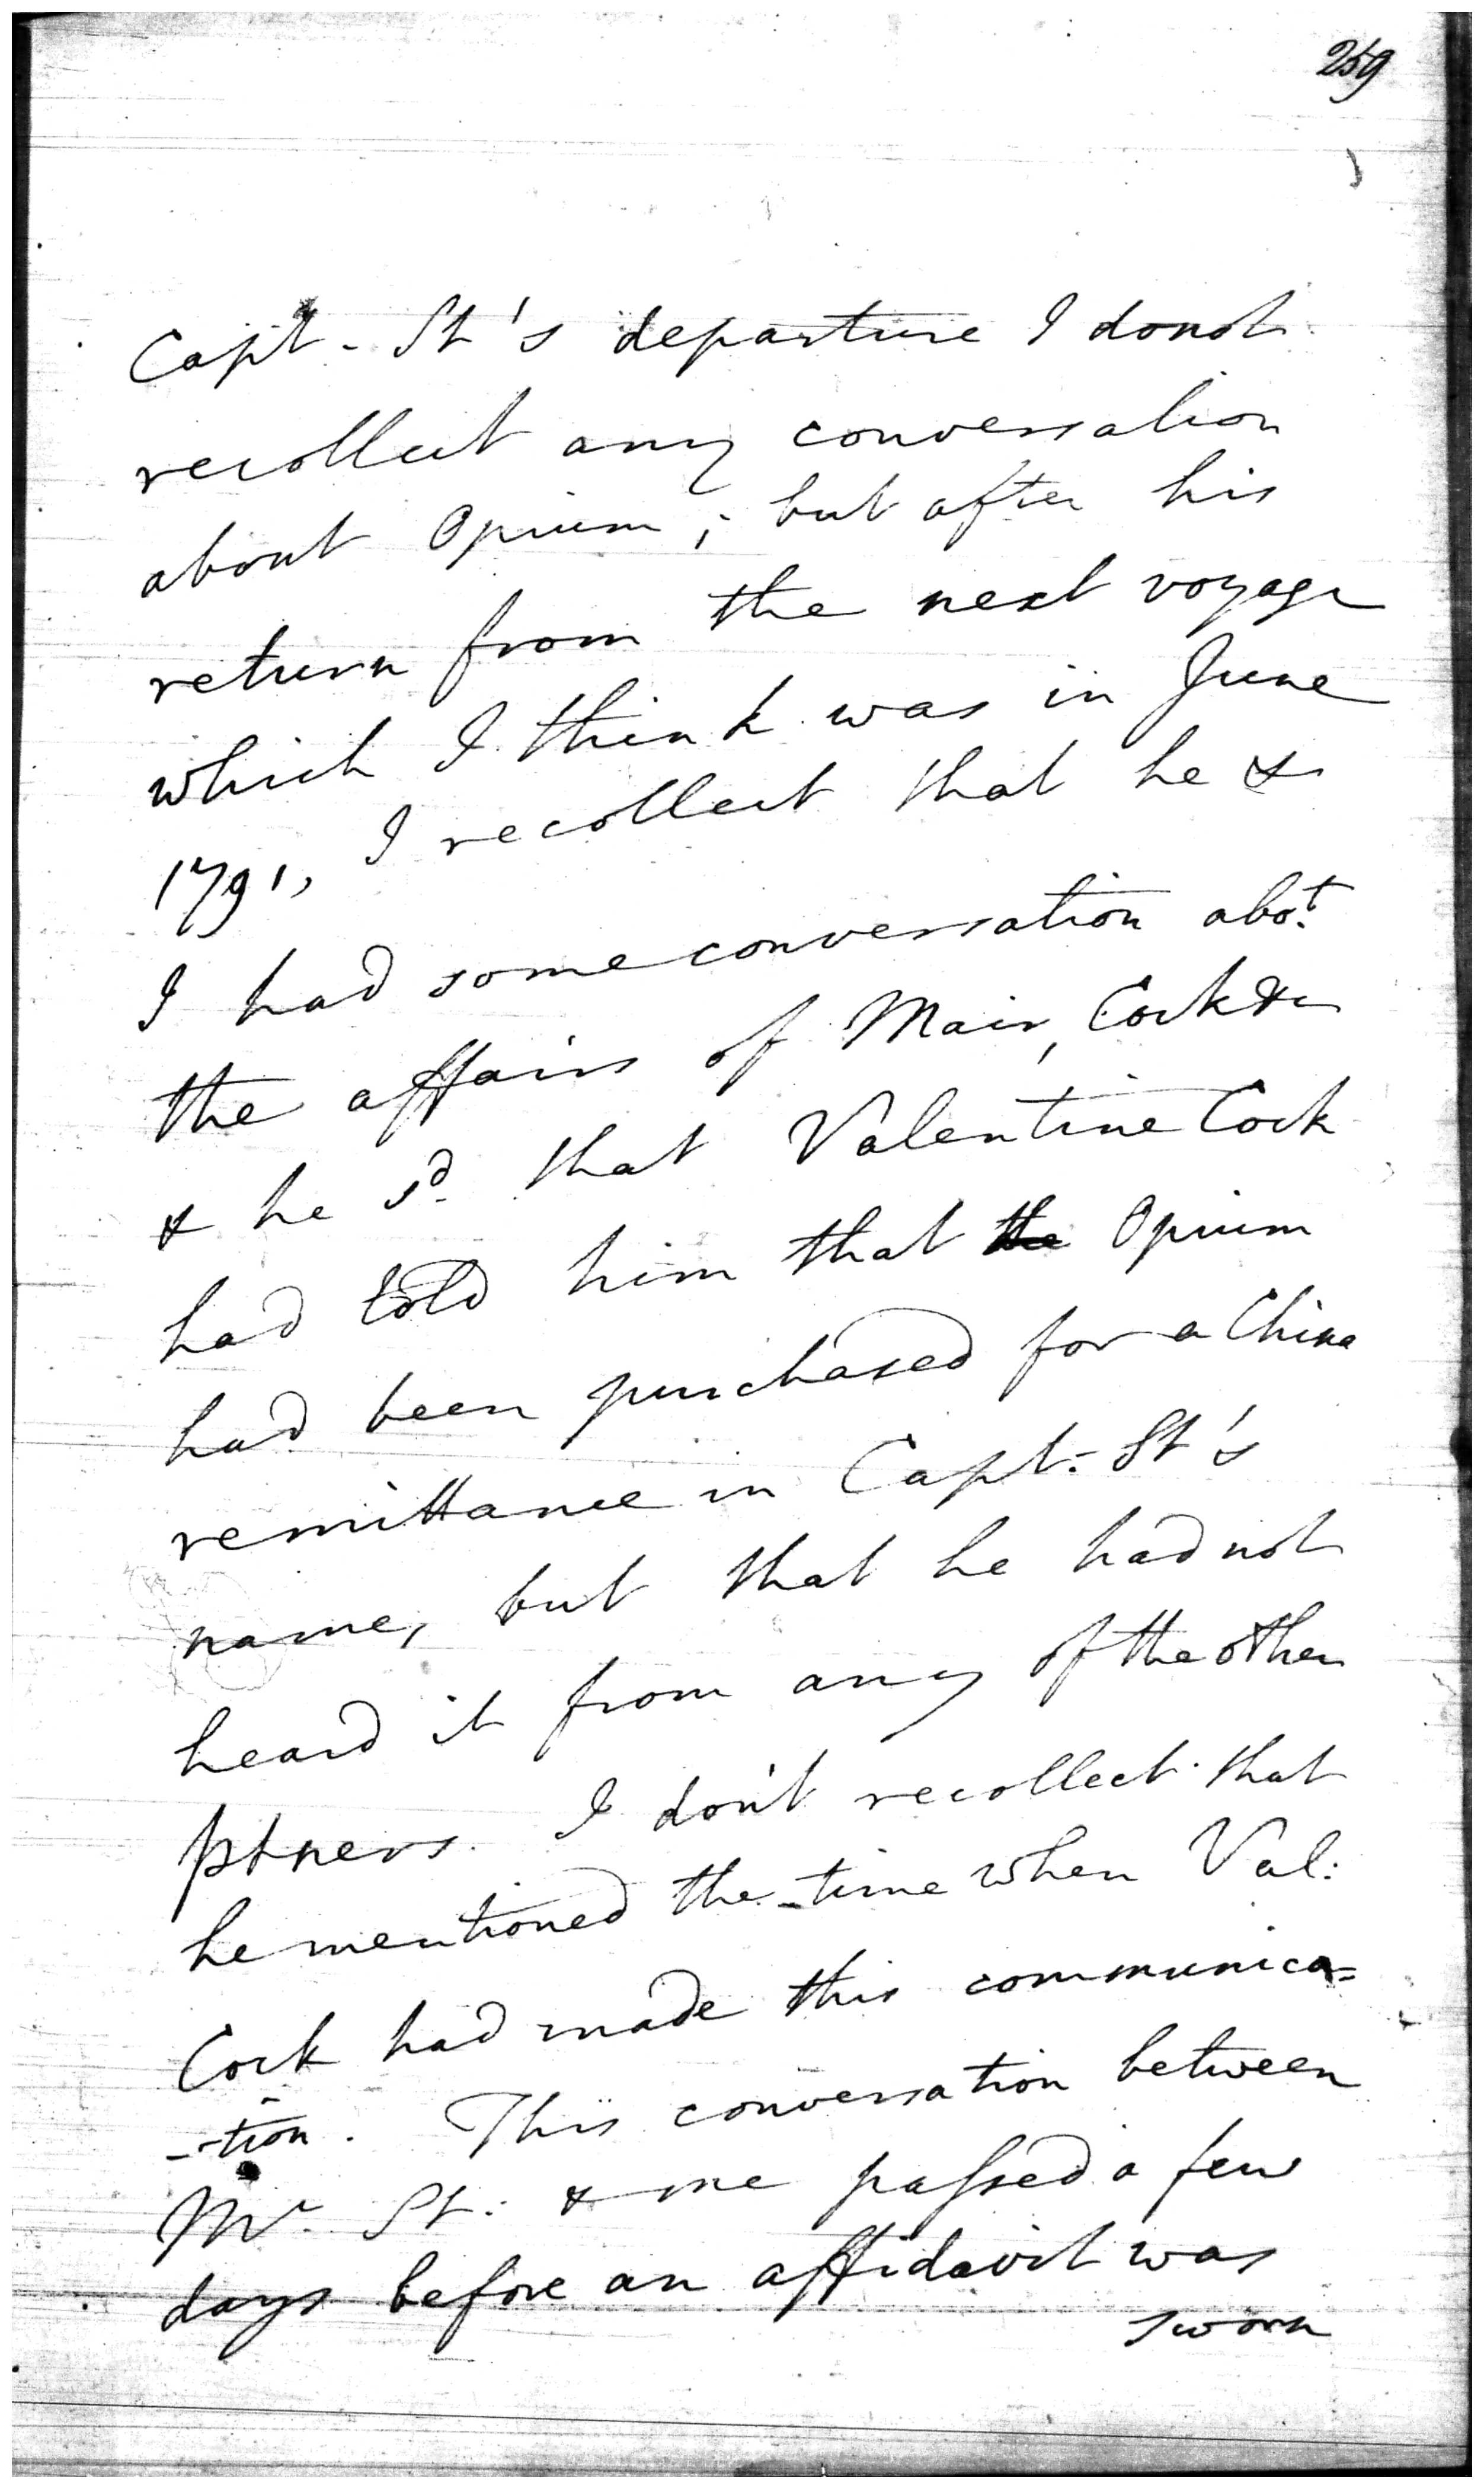 259
Capt - St's departure I donot
recollect any conversation
about Opium; but after his
return from the next voyage
which I think was in June
1791, I recollect that he &
I had some conversation abot
the affairs of Mair, Cock &c
& he sd that Valentine Cock
had told him that the Opium
had been purchased for a China
remittance in Capt: St's
name, but that he had not
heard it from any of the other
ptners. I don't recollect that
he mentioned the time when Val:
Cock had made this communica=
--tion. This conversation between
Mr St: & me passed a few
days before an affidavit was
sworn